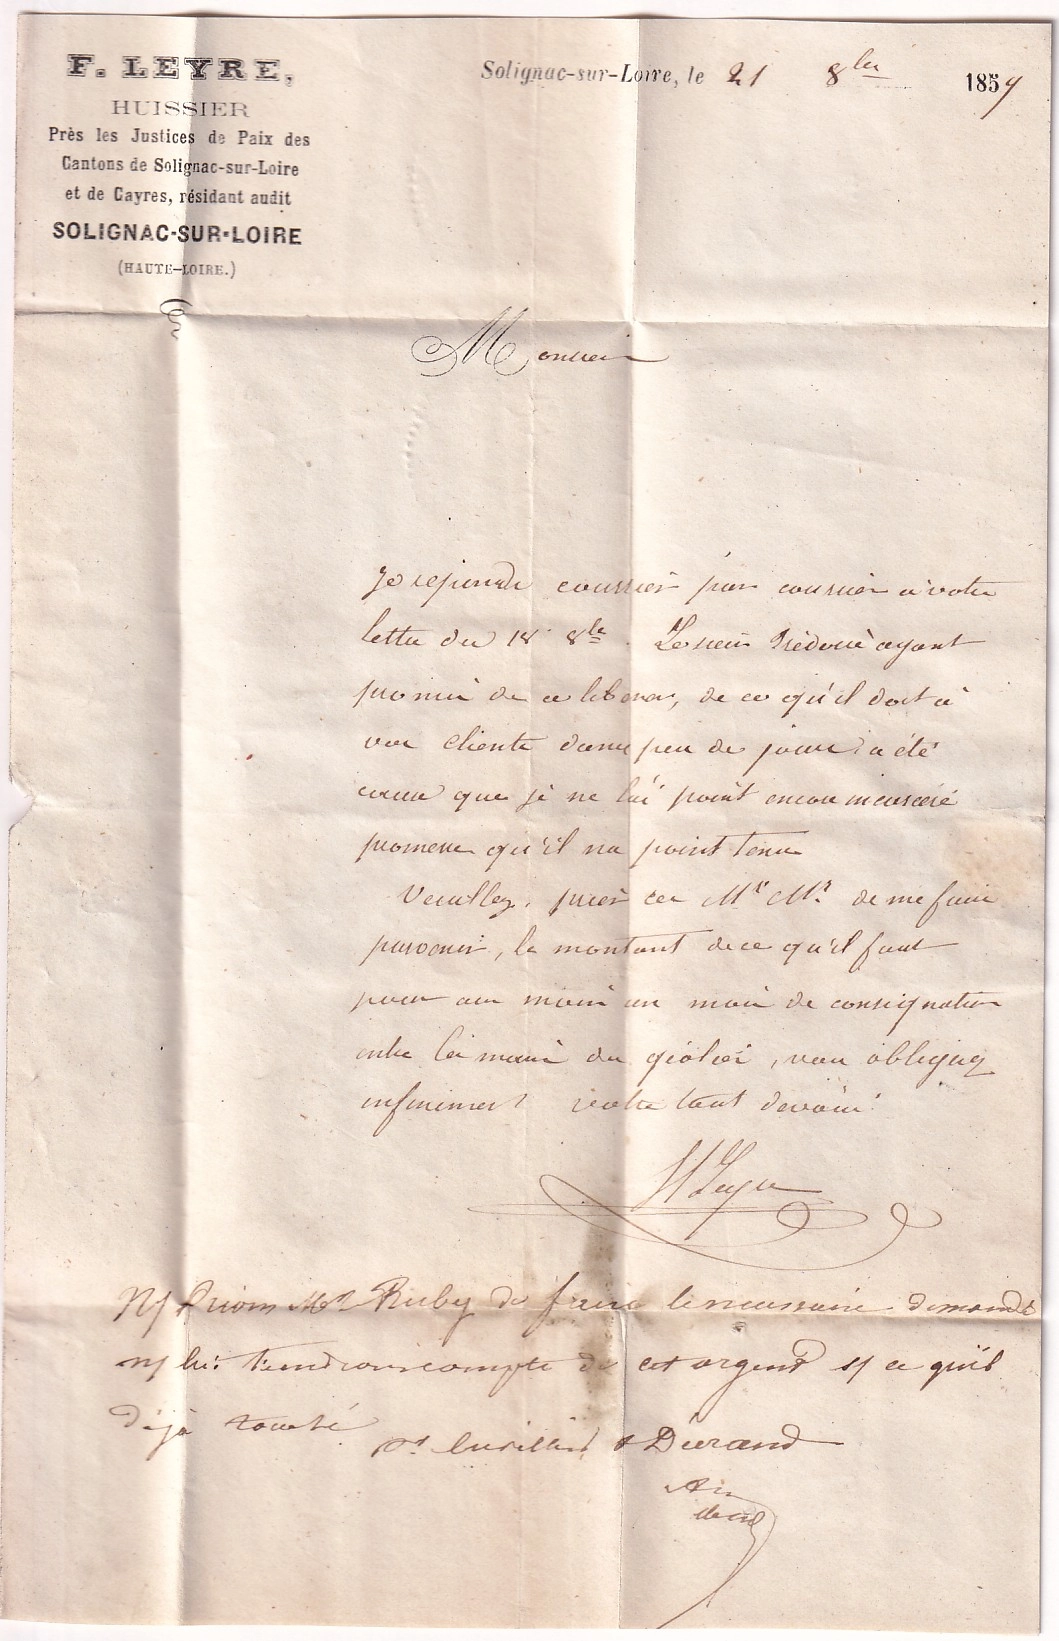 F. LEYRE,
HUISSIER
Près les Justices de Paix des
Cantons de Solignac-sur-Loire
et de Cayres, résidant audit
SOLIGNAC-SUR-LOIRE
(HAUTE-LOIRE.)
Solignac-sur-Loire, le 21 8bre 1859
Monsieur
Je reponds courrier par courrier a votre
lettre du 18 8bre. Le sieur ayant
promis de ce liberer, de ce qu'il doit à
vos clients dans peu de jours a été
cause que je ne l'ai point encore incarcéré
promesse qu'il na point tenu
Veuillez, prier ces Mrs Mrs de me faire
parvenir, le montant de ce qu'il faut
pour au moins un mois de consignation
entre les mains du géolier, vous obligerez
infiniment votre tout dévoué
F Leyre
N/ Prions Mr Ruby de faire le necessaire demandé
n/ lui tiendrons compte de cet argent s/ ce qu'il
déjà touché
pr & Durand